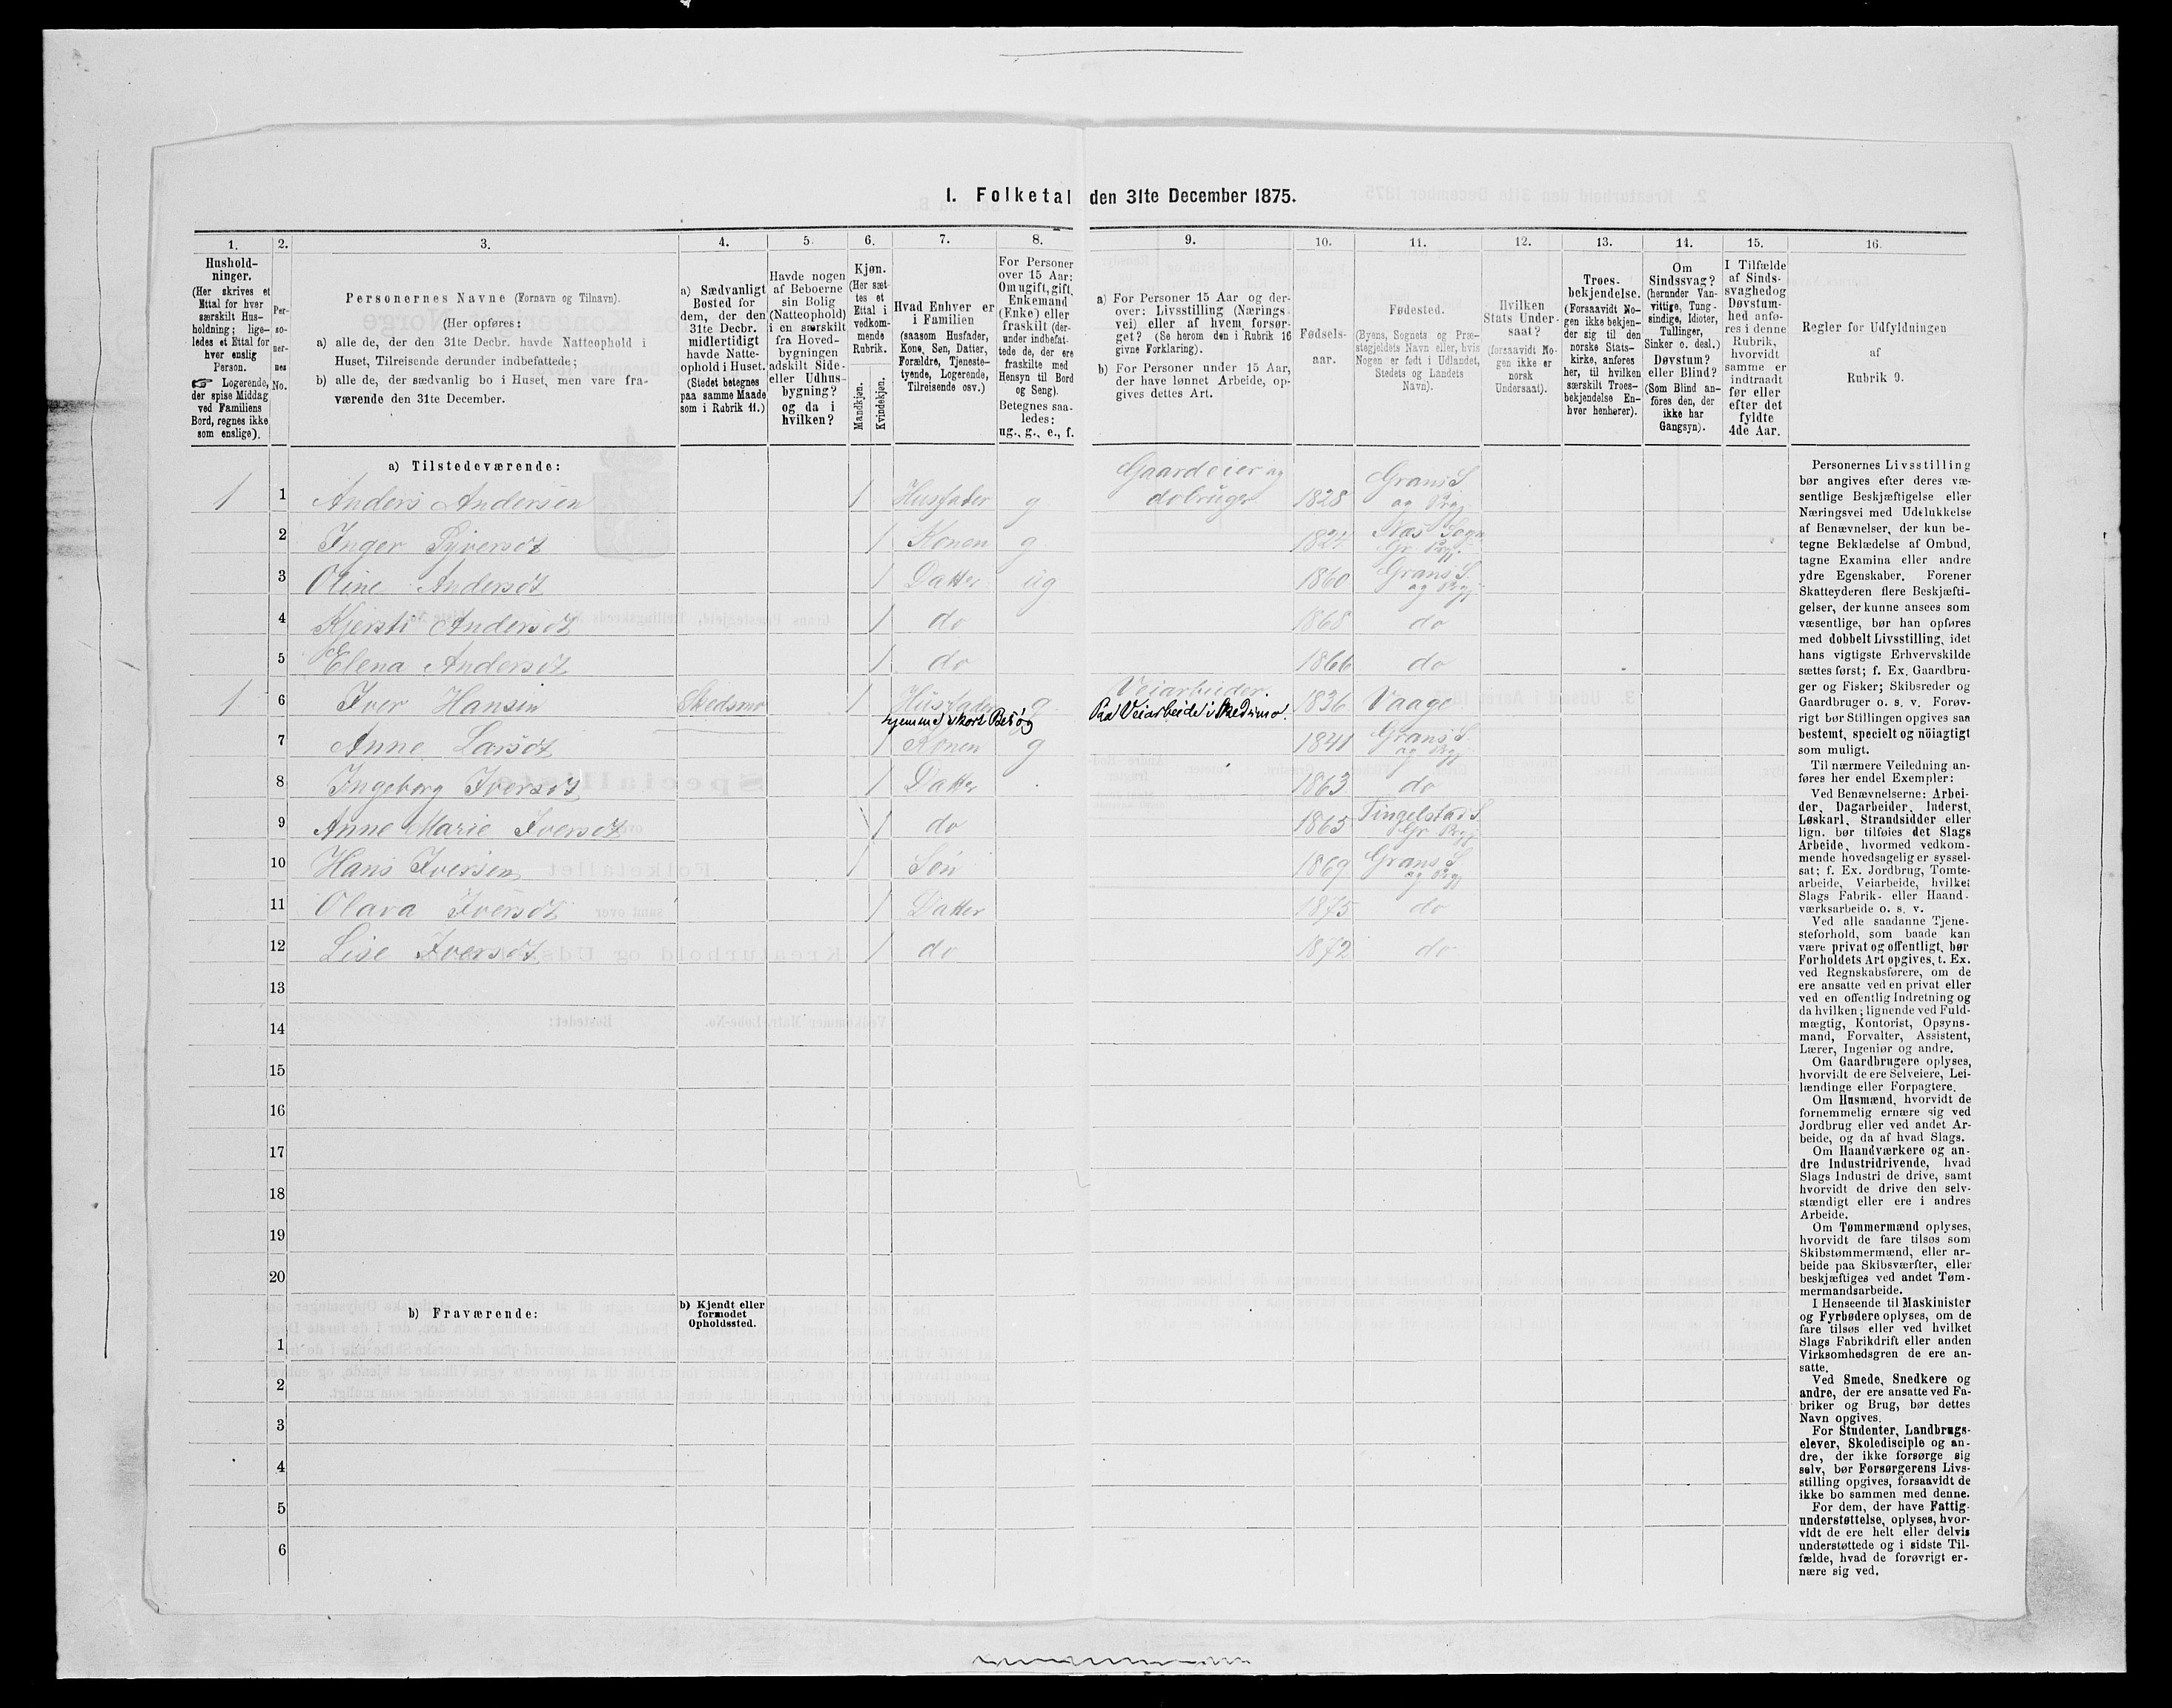 I. Folketal den 31te December 1875.
1. 2. 3. 4. 5. 6. 7. 8. 9. 10. 11. 12. 13. 14. 15. 16.
Hushold-
ninger.
(Her skrives et
Ettal for hver
særskilt Hus-
holdning; lige-
ledes et Ettal for
hver enslig
Person.
☞ Logerende,
der spise Middag
ved Familiens
Bord, regnes ikke
som enslige).
Per-
so-
ner-
nes
No.
Personernes Navne (Fornavn og Tilnavn).
(Her opføres:
a) alle de, der den 31te Decbr. havde Natteophold i
Huset, Tilreisende derunder indbefattede;
b) alle de, der sædvanlig bo i Huset, men vare fra-
værende den 31te December.
a) Sædvanligt
Bosted for
dem, der den
31te Decbr.
midlertidigt
havde Natte-
ophold i Huset.
(Stedet betegnes
paa samme Maade
som i Rubrik 11.)
Havde nogen
af Beboerne
sin Bolig
(Natteophold)
i en særskilt
fra Hoved-
bygningen
adskilt Side-
eller Udhus-
bygning?
og da i
hvilken?
Kjøn.
(Her sæt-
tes et
Ettal i
vedkom-
mende
Rubrik.
Mandkjøn.
Kvindekjøn.
Hvad Enhver er
i Familien
(saasom Husfader,
Kone, Søn, Datter,
Forældre, Tjeneste-
tyende, Logerende,
Tilreisende osv.)
For Personer
over 15 Aar:
Om ugift, gift,
Enkemand
(Enke) eller
fraskilt (der-
under indbefat-
tede de, der ere
fraskilte med
Hensyn til Bord
og Seng).
Betegnes saa-
ledes:
ug., g., e., f.
a) For Personer 15 Aar og der-
over: Livsstilling (Nærings-
vei) eller af hvem forsør-
get? (Se herom den i Rubrik 16
givne Forklaring).
b) For Personer under 15 Aar,
der have lønnet Arbeide, op-
gives dettes Art.
Fødsels-
aar.
Fødested.
(Byens, Sognets og Præ-
stegjeldets Navn eller, hvis
Nogen er født i Udlandet,
Stedets og Landets
Navn).
Hvilken
Stats Under-
saat?
(forsaavidt No-
gen ikke er
norsk
Undersaat).
Troes-
bekjendelse.
(Forsaavidt No-
gen ikke bekjen-
der sig til den
norske Stats-
kirke, anføres
her, til hvilken
særskilt Troes-
bekjendelse En-
hver henhører).
Om
Sindssvag?
(herunder Van-
vittige, Tung-
sindige, Idioter,
Tullinger,
Sinker o. desl.)
Døvstum?
eller Blind?
(Som Blind an-
føres den, der
ikke har
Gangsyn).
I Tilfælde
af Sinds-
svaghed og
Døvstum-
hed anfø-
res i denne
Rubrik,
hvorvidt
samme er
indtraadt
før eller
efter det
fyldte
4de Aar.
Regler for Udfyldningen
af
Rubrik 9.
a) Tilstedeværende:
1 1 Anders Andersen 1 Husfader g Gaardeier og dobruger 1828 Grans S. og Prgj
2 Inger Syversdt 1 Konen g 1824 Næs Sogn Gr. Prgj.
3 Oline Andersdt 1 Datter ug 1860 Grans S. og Prgj
4 Kjersti Andersdt 1 do 1868 do
5 Elena Andersdt 1 do 1866 do
1 6 Iver Hansen Skedsmo 1 Husfader g Veiarbeider 1836 Vaage
hjemme i kort Besøg Paa Veiarbeide i Skedsmo.
7 Anne Larsdt 1 Konen g 1841 Grans S. og Prgj
8 Ingeborg Iversdt 1 Datter 1863 do
9 Anne Marie Iversdt 1 do 1865 Tingelstad S. Gr Prgj
10 Hans Iversen 1 Søn 1869 Grans S og Prgj
11 Olava Iversdt 1 Datter 1875 do
12 Lise Iversdt 1 do 1872 do
13
14
15
16
17
18
19
20
b) Fraværende:
b) Kjendt eller
formodet
Opholdssted.
1
2
3
4
5
6
Personernes Livsstilling
bør angives efter deres væ-
sentlige Beskjæftigelse eller
Næringsvei med Udelukkelse
af Benævnelser, der kun be-
tegne Beklædelse af Ombud,
tagne Examina eller andre
ydre Egenskaber. Forener
Skatteyderen flere Beskjæfti-
gelser, der kunne ansees som
væsentlige, bør han opføres
med dobbelt Livsstilling, idet
hans vigtigste Erhvervskilde
sættes først; f. Ex. Gaardbru-
ger og Fisker; Skibsreder og
Gaardbruger o. s. v. Forøv-
rigt bør Stillingen opgives saa
bestemt, specielt og nöiagtigt
som muligt.
Til nærmere Veiledning an-
føres her endel Exempler:
Ved Benævnelserne: Arbei-
der, Dagarbeider, Inderst,
Løskarl, Strandsidder eller
lign. bør tilføies det Slags
Arbeide, hvormed vedkom-
mende hovedsagelig er syssel-
sat; f. Ex. Jordbrug, Tomte-
arbeide, Veiarbeide, hvilket
Slags Fabrik- eller Haand-
værksarbeide o. s. v.
Ved alle saadanne Tjene-
steforhold, som baade kan
være privat og offentligt, bør
Forholdets Art opgives, t. Ex.
ved Regnskabsførere, om de
ere ansatte ved en privat eller
ved en offentlig Indretning og
da hvilken; lignende ved Fuld-
mægtig, Kontorist, Opsyns-
mand, Forvalter, Assistent,
Lærer, Ingeniør og andre.
Om Gaardbrugere oplyses,
hvorvidt de ere Selveiere, Lei-
lændinge eller Forpagtere.
Om Husmænd, hvorvidt de
fornemmelig ernære sig ved
Jordbrug eller ved andet Ar-
beide, og da af hvad Slags.
Om Haandværkere og an-
dre Industridrivende, hvad
Slags Industri de drive, samt
hvorvidt de drive den selv-
stændigt eller ere i andres
Arbeide.
Om Tømmermænd oplyses,
hvorvidt de fare tilsøs som
Skibstømmermænd, eller ar-
beide paa Skibsværfter, eller
beskjæftiges ved andet Tøm-
mermandsarbeide.
I Henseende til Maskinister
og Fyrbødere oplyses, om de
fare tilsøs eller ved hvilket
Slags Fabrikdrift eller anden
Virksomhedsgren de ere an-
satte.
Ved Smede, Snedkere og
andre, der ere ansatte ved Fa-
briker og Brug, bør dettes
Navn opgives.
For Studenter, Landbrugs-
elever, Skoledisciple og an-
dre, der ikke forsørge sig
selv, bør Forsørgerens Livs-
stilling opgives, forsaavidt de
ikke bo sammen med denne.
For dem, der have Fattig-
understøttelse, oplyses, hvor-
vidt de ere helt eller delvis
understøttede og i sidste Til-
fælde, hvad de forøvrigt er-
nære sig ved.